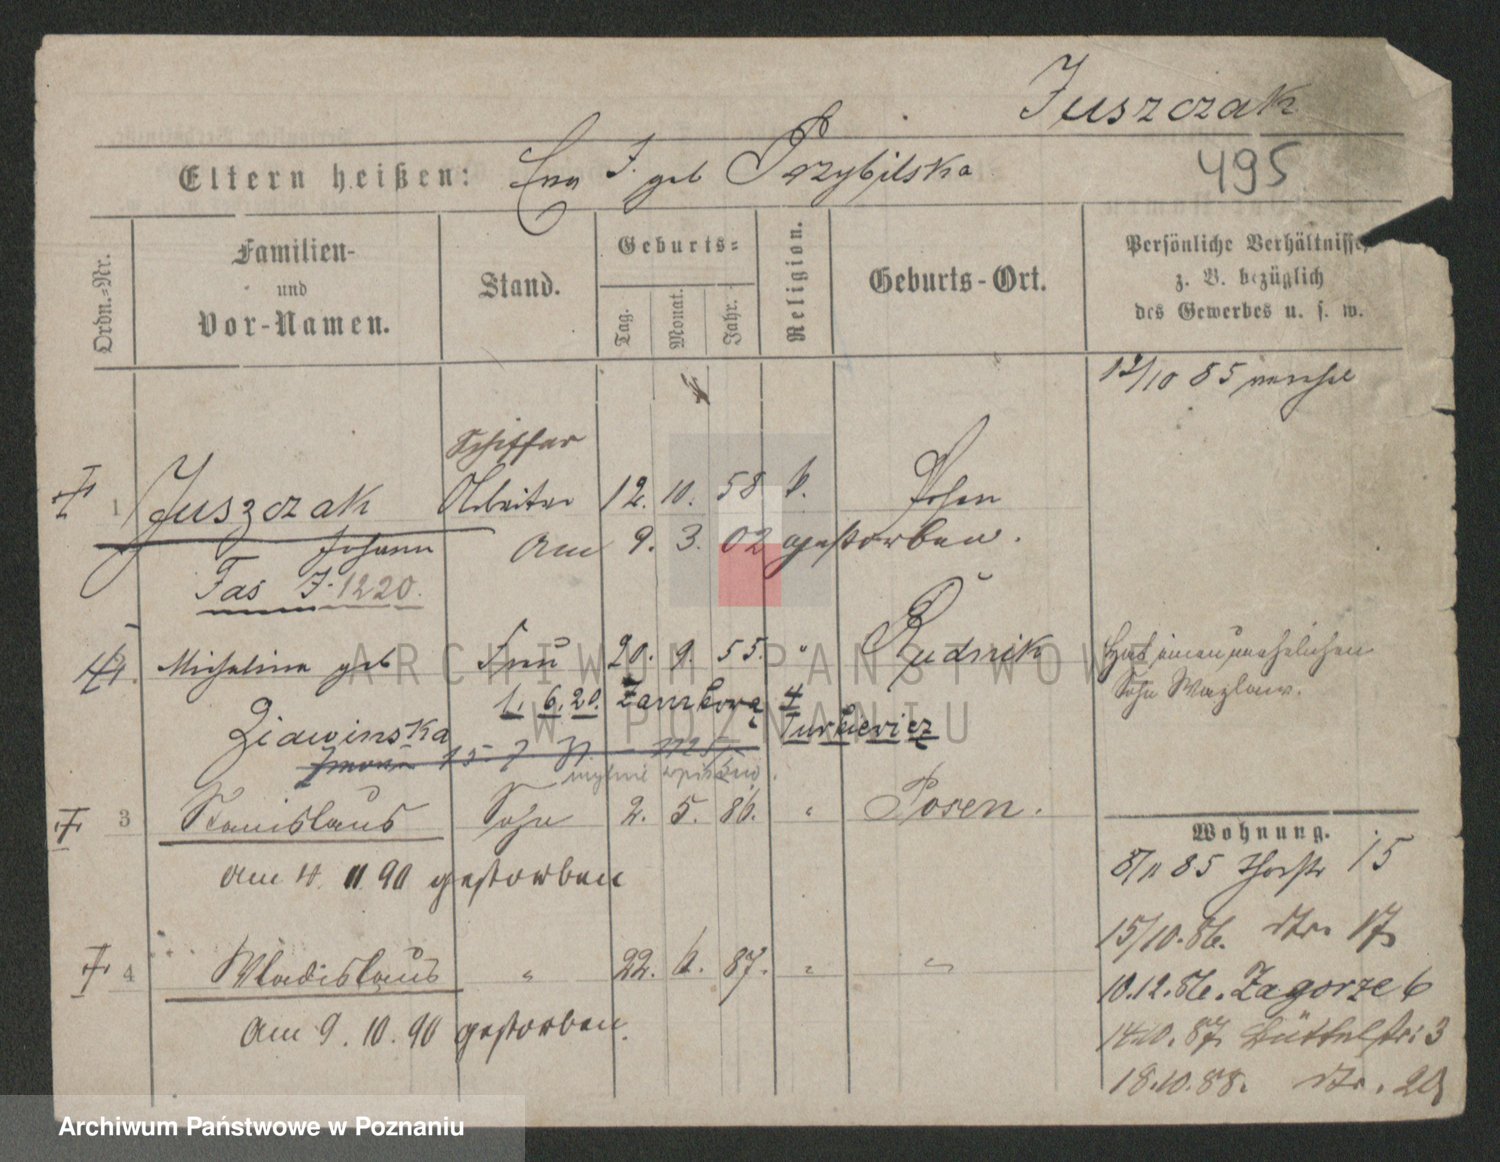 Juszczak
495
Eltern heißen: Eva J. geb Przybilska
Ordn.-Nr.
Familien- und Vor-Namen.
Stand.
Geburts-
Tag.
Monat.
Jahr.
Religion.
Geburts-Ort.
Persönliche Verhältnisse,
z. B. bezüglich
des Gewerbes u. s. w.
12/10 85
Schiffer
1 Juszczak Arbeiter 12. 10. 58 k. Posen
Johann am 9. 3. 02 gestorben.
Fas J. 1220.
Michalina geb Frau 20. 9. 55. " Rudnik
Hat einen unehelichen
Sohn
1. 6. 20. Zamborg 4
Ziawinska Turkiewicz
15. 7.
mylnie wpisano.
3 Stanislaus Sohn 2. 5. 86. " Posen.
am 4. 11. 90 gestorben
4 Wladislaus " 22. 6. 87. " "
Am 9. 10. 90 gestorben.
Wohnung.
8/11 85 15
15/10. 86. 17
10.12.86. Zagorze 6
14.10.87. Büttelstr: 3
18.10.88. 20
ARCHIWUM PAŃSTWOWE
W POZNANIU
Archiwum Państwowe w Poznaniu